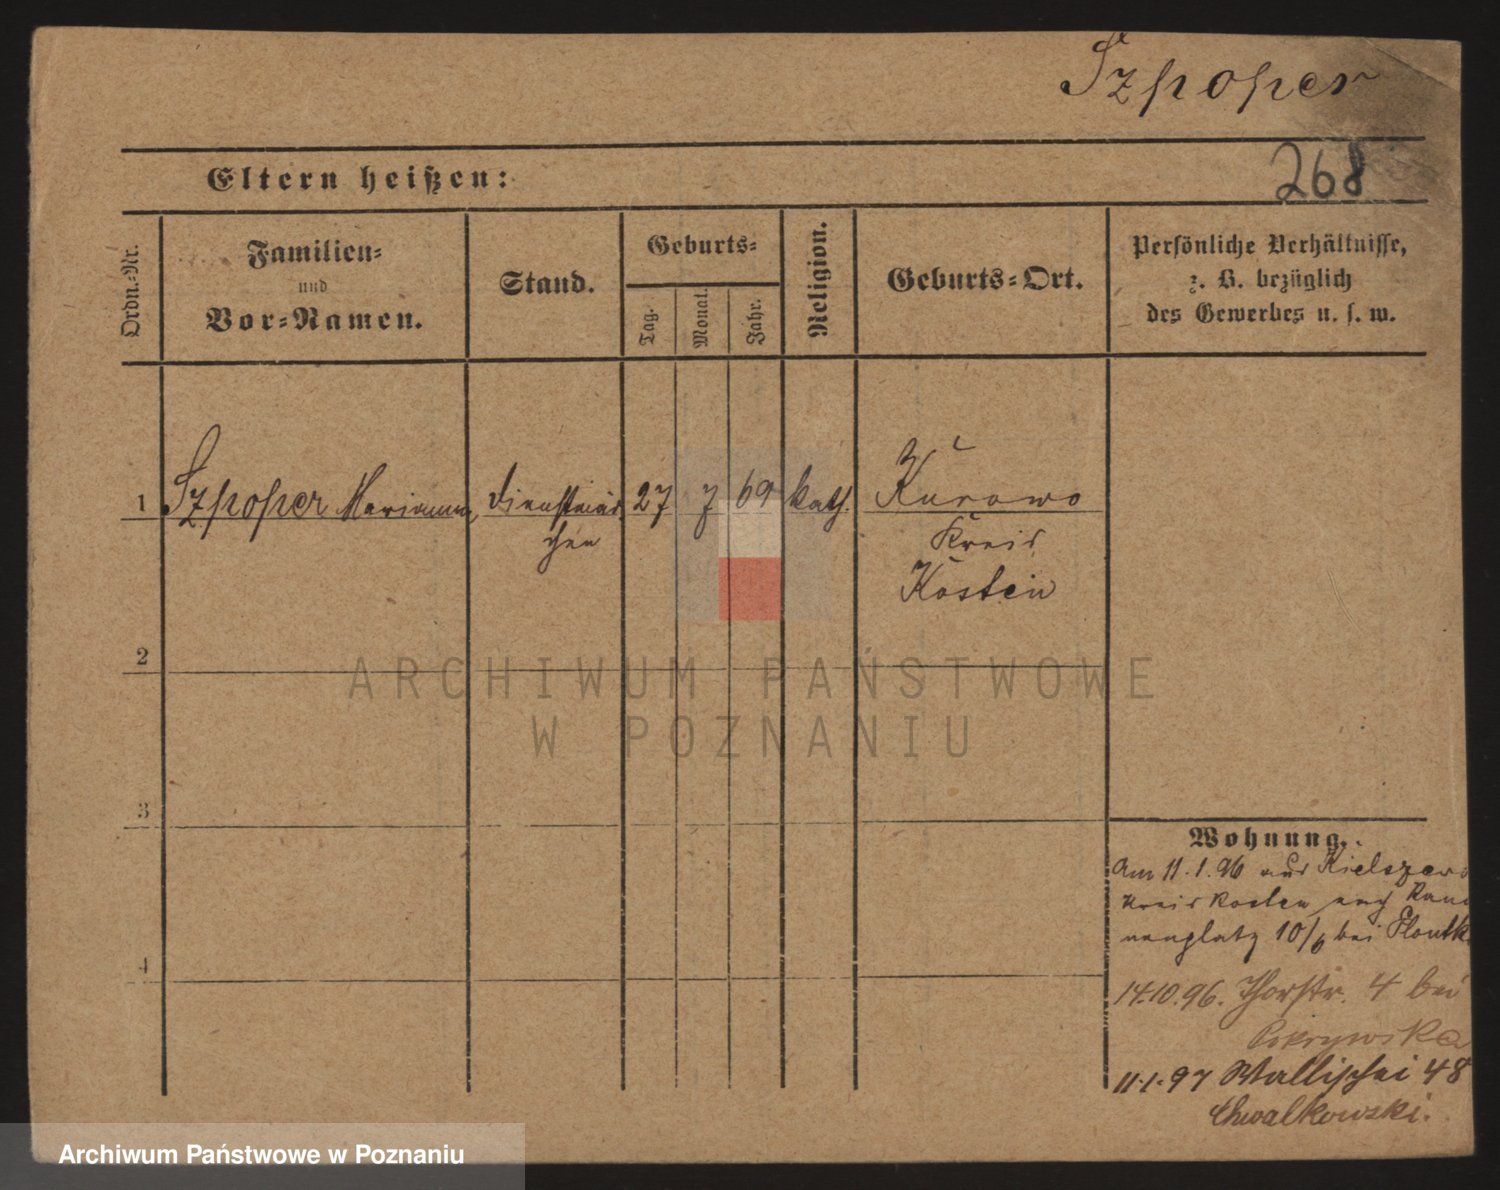 Szpoper
268
Eltern heißen:
Ordn.-Nr.
Familien-
und
Vor-Namen.
Stand.
Geburts-
Tag.
Monat.
Jahr.
Religion.
Geburts-Ort.
Persönliche Verhältnisse,
z. B. bezüglich
des Gewerbes u. s. w.
1 Szpoper Marianna dienstmäd 27 7 69 kath. Kurowo
chen
Kreis
Kosten
2
3
4
Wohnung.
Am 11.1.96 aus Kielszewo
Kreis Kosten nach Kano
nenplatz 10/ bei
14.10.96. Thorstr. 4 bei
Pokrywska
11.1.97 Wallischei 48
Chwalkowski.
ARCHIWUM PAŃSTWOWE
W POZNANIU
Archiwum Państwowe w Poznaniu